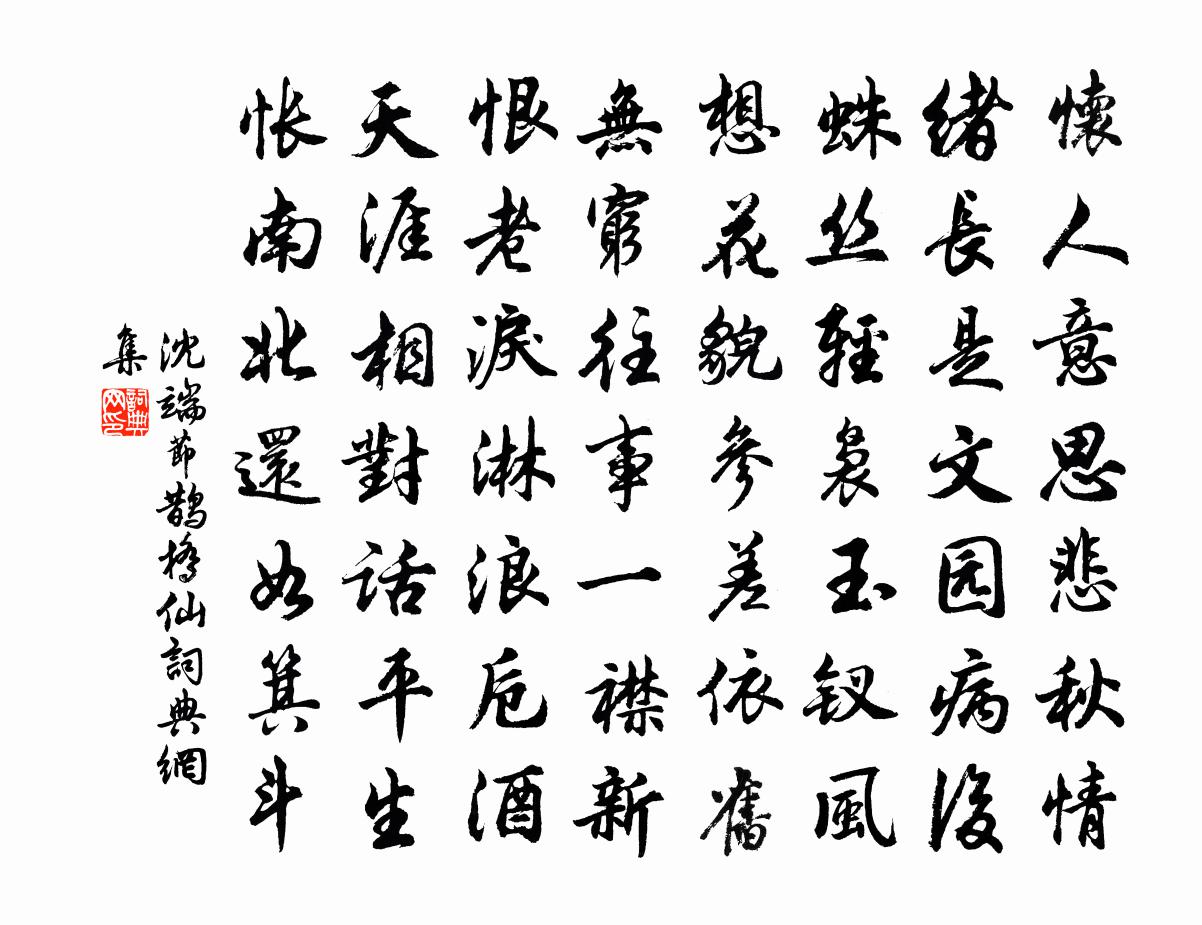 懷人意思悲秋情
緒長是文园病後
蛛丝輕裊玉钗風
想花貌參差依舊
無窮往事一襟新
恨老淚淋浪卮酒
天涯相對話平生
怅南北還如箕斗
沈端節鵲橋仙詞典網
集
詞典网印